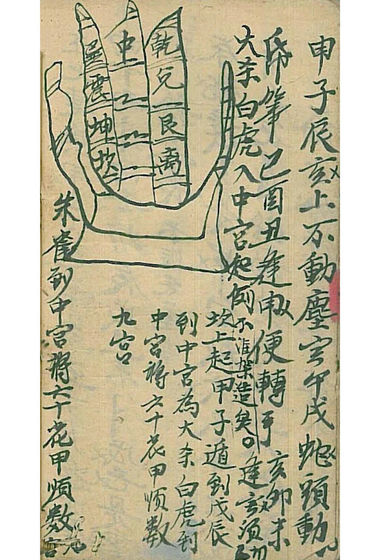 申子辰亥上不動塵寅午戌蛇頭動
筆巳酉丑逢申便轉手亥卯未
大杀白虎入中宮起例不准架造矣。逢亥須
坎上起甲子遁到戊辰
到中宮為大杀白虎到
中宮將六十花甲順數
九宮
乾兌艮離
中
巽震坤坎
朱雀到中宮將六十花甲順數